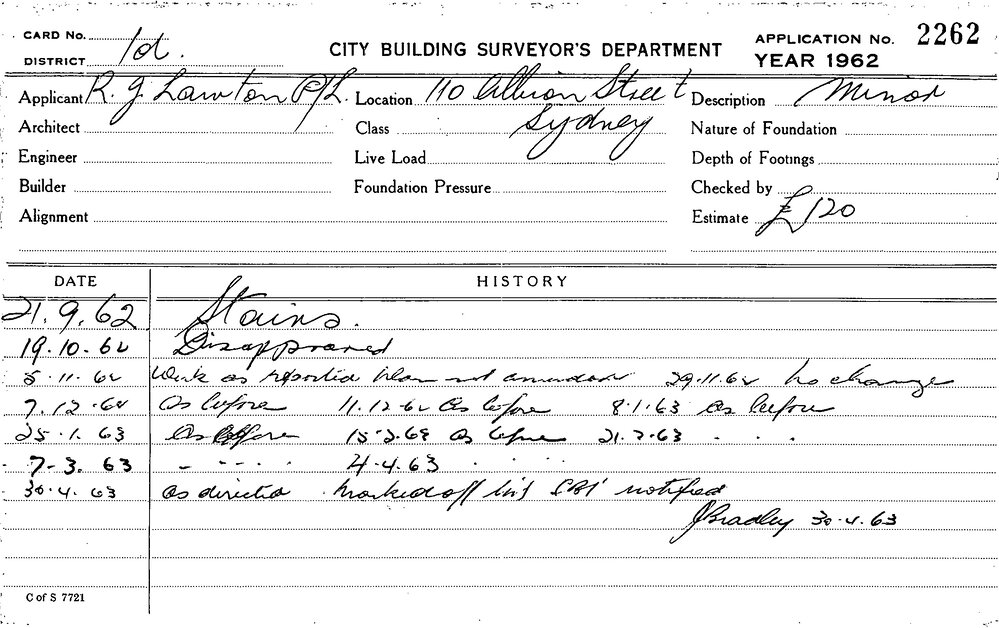 CARD No.
DISTRICT 1d.
CITY BUILDING SURVEYOR'S DEPARTMENT
APPLICATION No. 2262
YEAR 1962
Applicant R. J. Lawton P/L. Location 110 Albion Street Description Minor
Architect Class Sydney Nature of Foundation
Engineer Live Load Depth of Footings
Builder Foundation Pressure Checked by
Alignment Estimate £120
DATE HISTORY
21.9.62 Stairs.
19.10.62 Disapproved
5.11.62 Work as reported plan not amended 29.11.62 no change
7.12.62 As before 11.12.62 As before 8.1.63 as before
25.1.63 As before 15.2.63 as before 21.2.63 . . .
7-3.63 - - - - 4.4.63 . . .
30.4.63 as directed marked off list notified
JBradley 30.4.63
C of S 7721